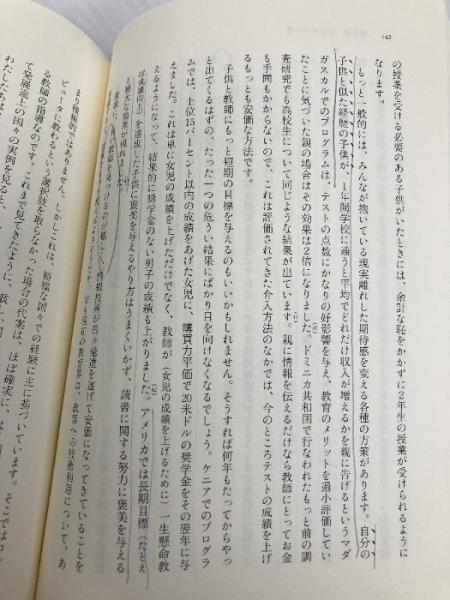 142
の授業を受ける必要のある子供がいたときには、余計な恥をかかずに2年生の授業が受けられるように
なります。
もっと一般的には、みんなが抱いている現実離れした期待感を変える各種の方策があります。自分の
子供と似た経歴の子供が、1年間学校に通うと平均でどれだけ収入が増えるかを親に告げるというマダ
ガスカルでのプログラムは、テストの点数にかなりの好影響を与え、教育のメリットを過小評価してい
たことに気づいた親の場合はその効果は2倍になりました。ドミニカ共和国で行なわれたもっと前の調
査研究でも高校生について同じような結果が出ています。親に情報を伝えるだけなら教師にとってお金
も手間もかからないので、これは評価されてきた介入方法のなかでは、今のところテストの成績を上げ
るもっとも安価な方法です。
子供と教師にもっと短期の目標を与えるのもいいかもしれません。そうすれば何年もたってからやっ
と出てくるはずの、たった一つの危うい結果にばかり目を向けなくなるでしょう。ケニアでのプログラ
ムでは、上位15パーセント以内の成績をあげた女児に、購買力平価で20米ドルの奨学金をその翌年に与
えました。これは単に女児の成績を上げただけでなく、教師が（女児の成績を上げるために）一生懸命教
えるようになって、結果的に奨学金のない男子の成績も上がりました。アメリカでは長期目標（たとえ
ば成績向上）を達成した子供に褒美を与えるやり方はうまくいかず、読書に関する努力に褒美を与える
と
効果が現れました。
情報技術が日々発達を遂げて安価になってきていることを
教育への技術利用について、あ
まり情熱的ではありません。しかしこれは、裕福な国々での経験に主に基づいています。
ピュータに教えるという選択肢を取らなかった場合の代案は、ほぼ確実に、
る教師の指導なのです。これまで見てきたように、
て発展途上の国々の実例を見ると、
わたしたちは